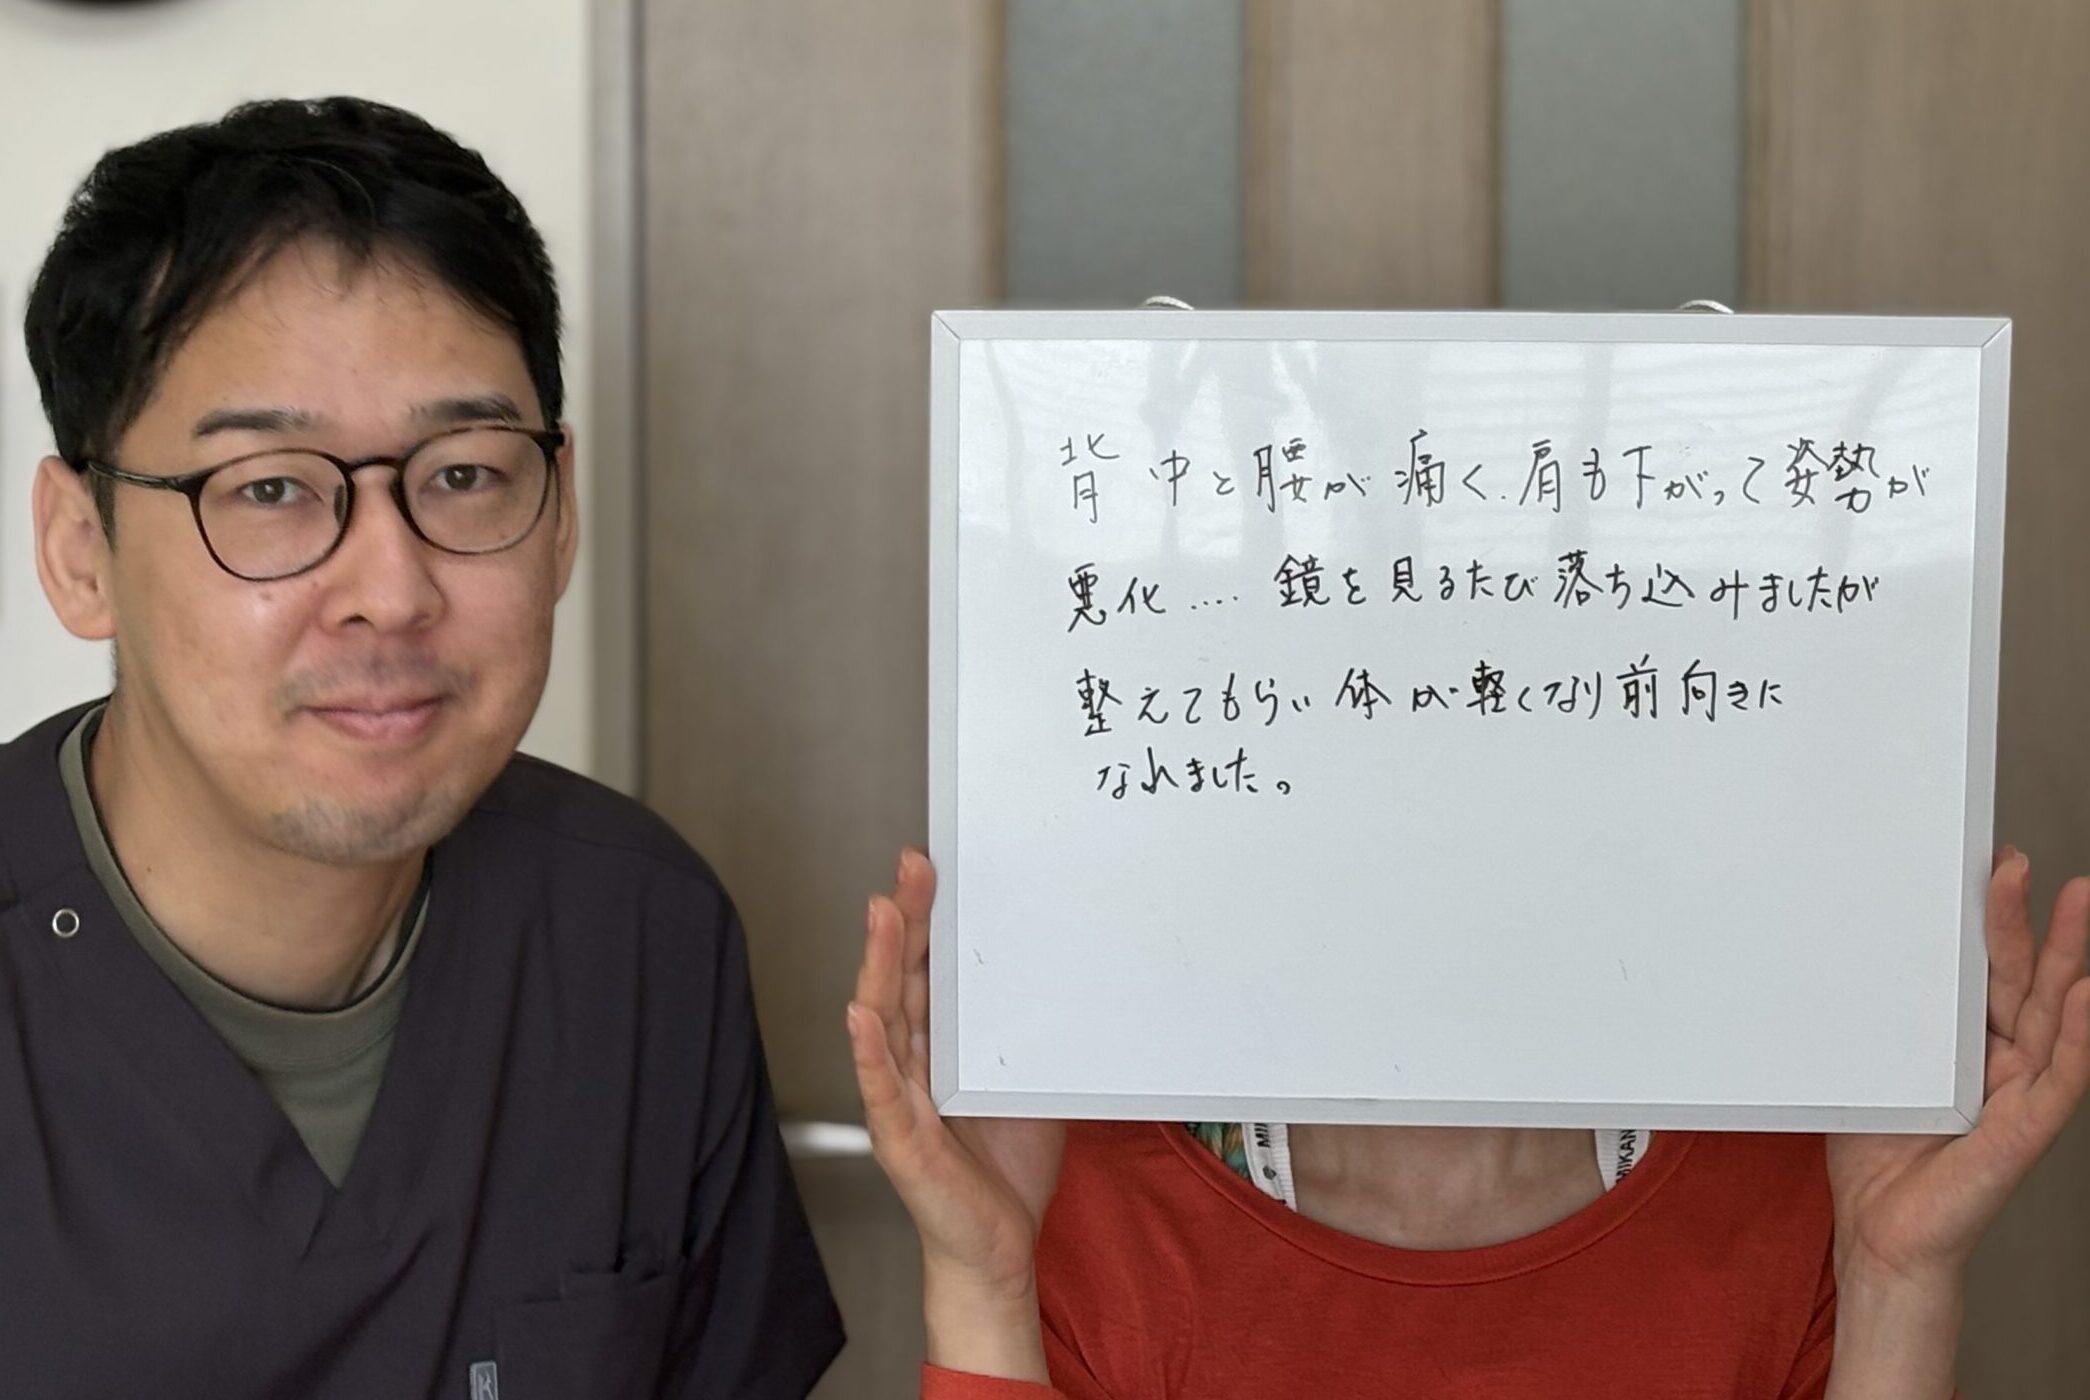 背中と腰が痛く、肩も下がって姿勢が
悪化‥‥鏡を見るたび落ち込みましたが
整えてもらい体が軽くなり前向きに
なれました。
MIKAN